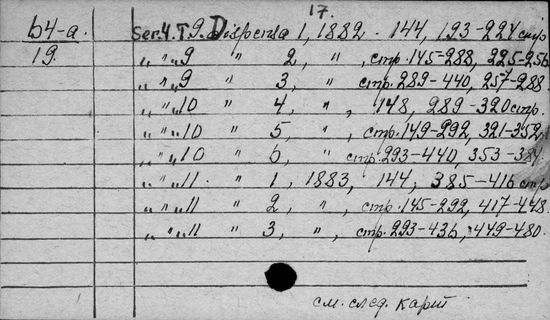 17.
б4-а. Ser. 4. T. 9. Dispensa 1, 1882. 144, 193-224 стр
19. „ „ „ 9 „ 2, „ , стр. 145-288, 225-256
„ „ „ 9 „ 3, „ , стр. 289-440, 257-288
„ „ „ 10 „ 4, „ , 148, 289-320 стр.
„ „ „ 10 „ 5, „ , стр. 149-292, 321-352
„ „ „ 10 „ 6, „ , стр. 293-440, 353-384
„ „ „ 11. „ 1, 1883, 144, 385-416 стр
„ „ „ 11 „ 2, „ , стр. 145-292, 417-448.
„ „ „ 11 „ 3, „ , стр. 293-436, 449-480.
см. след. карт